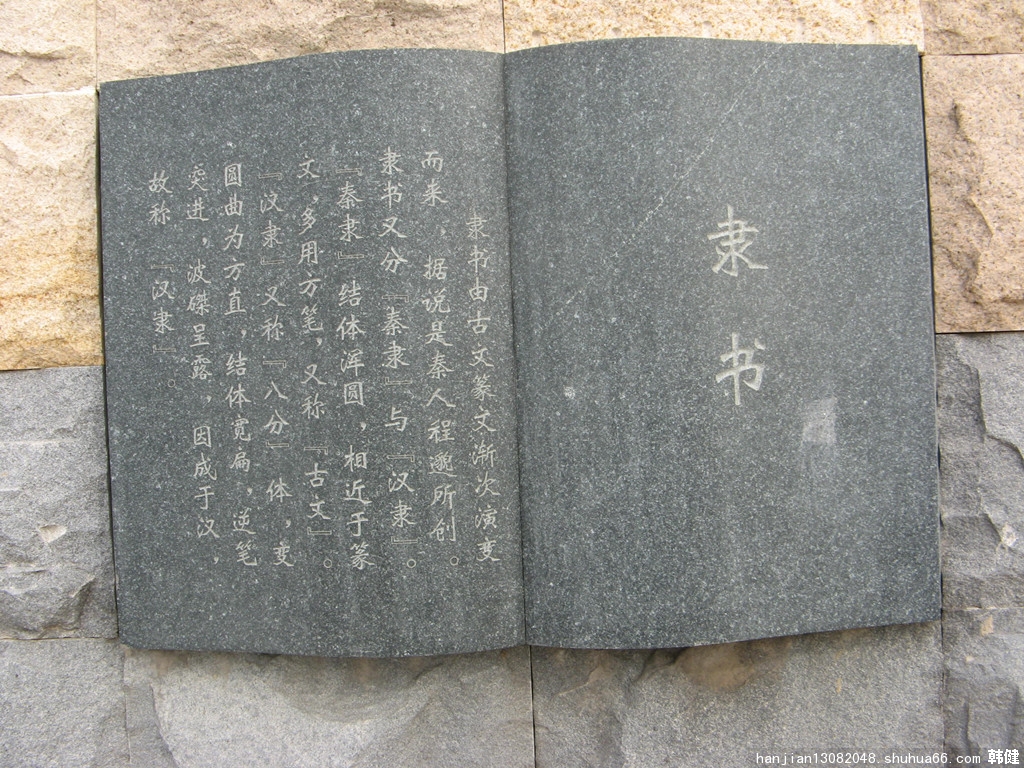 隶书
隶书由古文篆文渐次演变
而来，据说是秦人程邈所创。
隶书又分『秦隶』与『汉隶』。
『秦隶』结体浑圆，相近于篆
文，多用方笔，又称『古文』。
『汉隶』又称『八分』体，变
圆曲为方直，结体宽扁，逆笔
突进，波磔呈露，因成于汉，
故称『汉隶』。
hanjian13082048.shuhua66.com 韩健